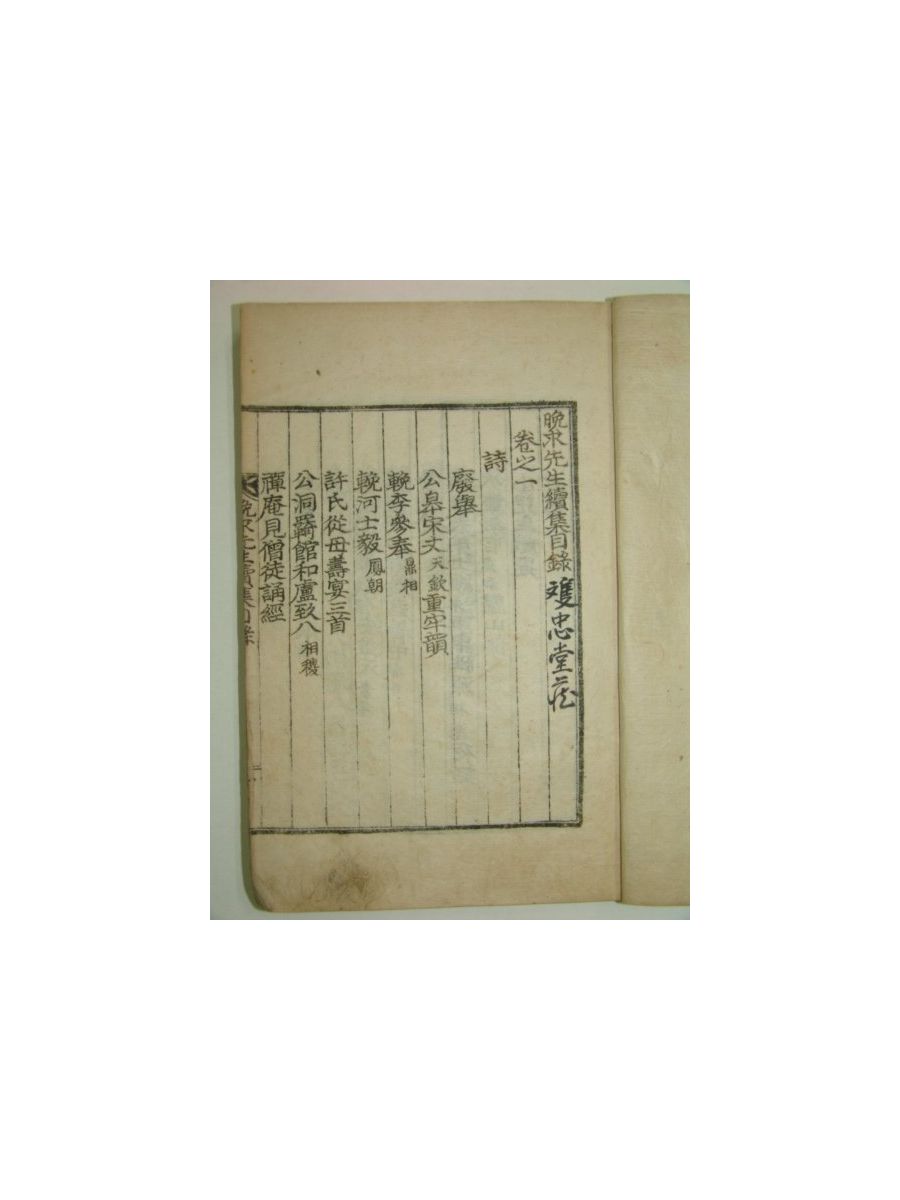 晩求先生續集目錄 雙忠堂藏
卷之一
詩
廢舉
公皐宋丈天欽重牢韻
輓李參奉鼎相
輓河士毅鳳朝
許氏從母壽宴三首
公洞羇館和盧致八相稷
禪庵見僧徒誦經
晩求先生續集目錄